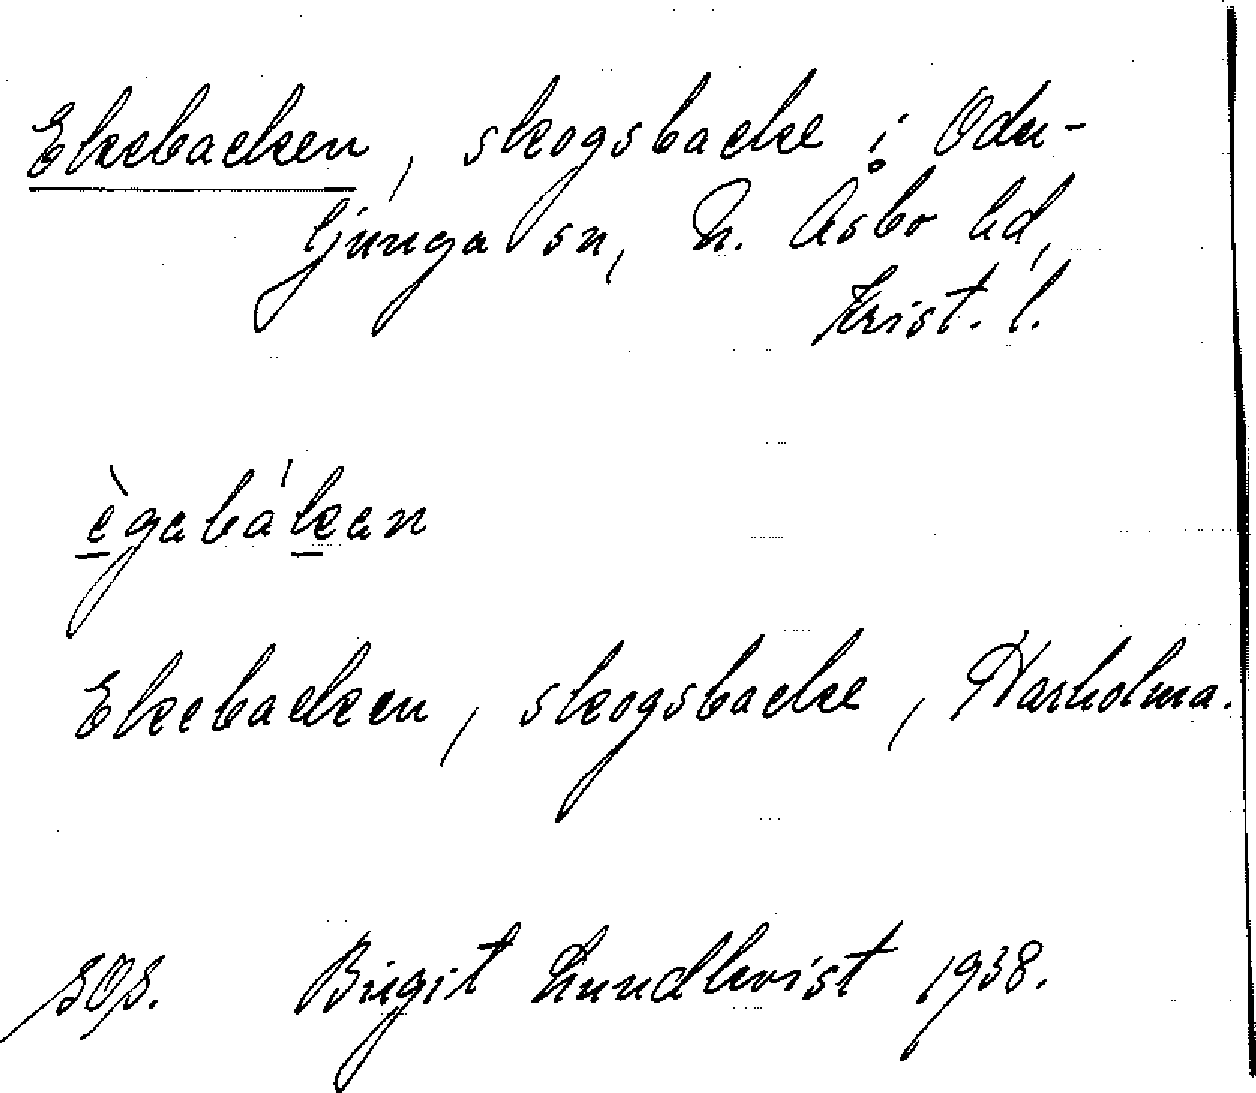 Ekebacken, skogsbacke i Odu-
ljunga sn, N. Åsbo hd,
Krist. l.
ègabákan
Ekebacken, skogsbacke, Harholma.
SOS. Birgit Lundkvist 1938.